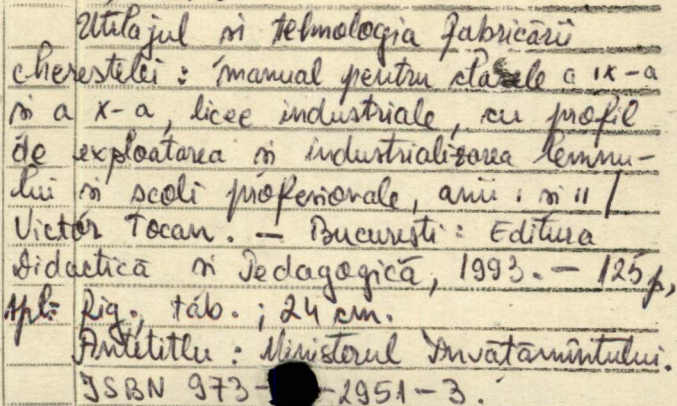 Utilajul și tehnologia fabricării
cherestelei : manual pentru clasele a IX-a
și a X-a, licee industriale, cu profil
de exploatarea și industrializarea lemnu-
lui și școli profesionale, anii I și II /
Victor Tocan. — București : Editura
Didactică și Pedagogică, 1993. — 125 p,
fig., tab. ; 24 cm.
Antetitlu : Ministerul Învățămîntului.
ISBN 973- -2951-3.